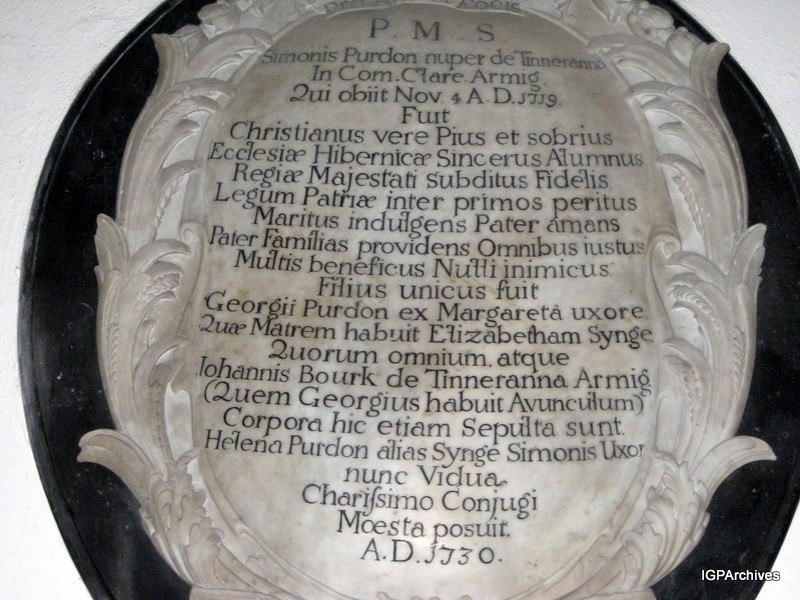 P. M. S
Simonis Purdon nuper de Tinneranna
In Com. Clare Armig.
Qui obiit Nov. 4 A.D. 1719.
Fuit
Christianus vere Pius et sobrius
Ecclesiæ Hibernicæ Sincerus Alumnus
Regiæ Majestati subditus Fidelis
Legum Patriæ inter primos peritus
Maritus indulgens Pater amans
Pater Familias providens Omnibus iustus
Multis beneficus Nulli inimicus
Filius unicus fuit
Georgii Purdon ex Margaretâ uxore
Quæ Matrem habuit Elizabetham Synge.
Quorum omnium. atque
Johannis Bourk de Tinneranna Armig.
(Quem Georgius habuit Avunculum)
Corpora hic etiam Sepulta sunt.
Helena Purdon alias Synge Simonis Uxor
nunc Vidua
Chariſsimo Conjugi
Mœsta posuit.
A.D. 1730.
IGPArchives